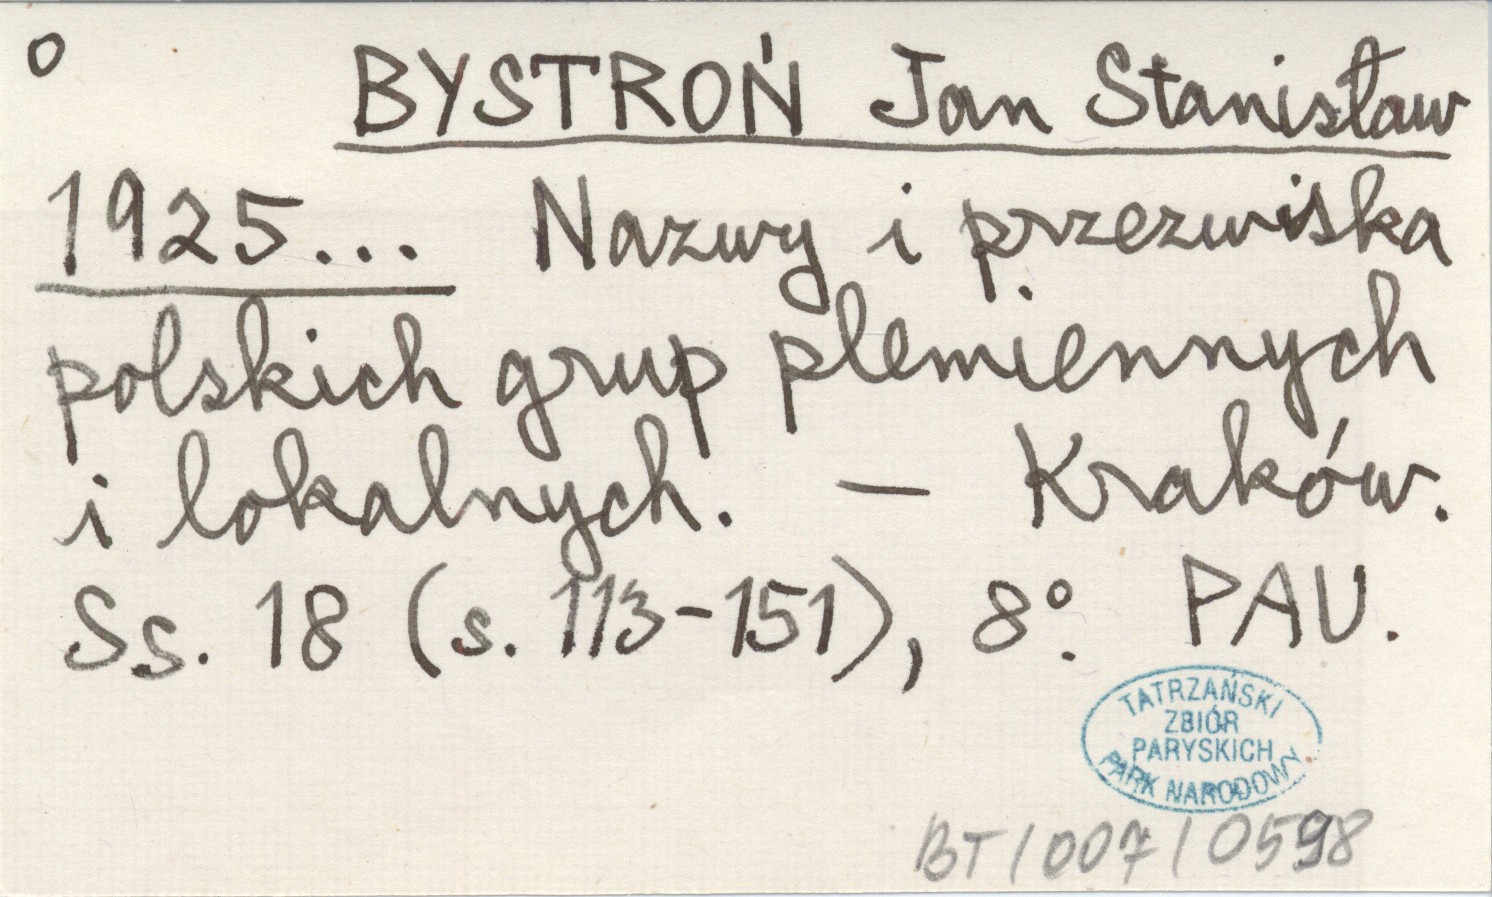 o BYSTROŃ Jan Stanisław
1925... Nazwy i przezwiska
polskich grup plemiennych
i lokalnych. — Kraków.
Ss. 18 (s. 113-151), 8°. PAU.
TATRZAŃSKI
ZBIÓR
PARYSKICH
PARK NARODOWY
BT/007/0598